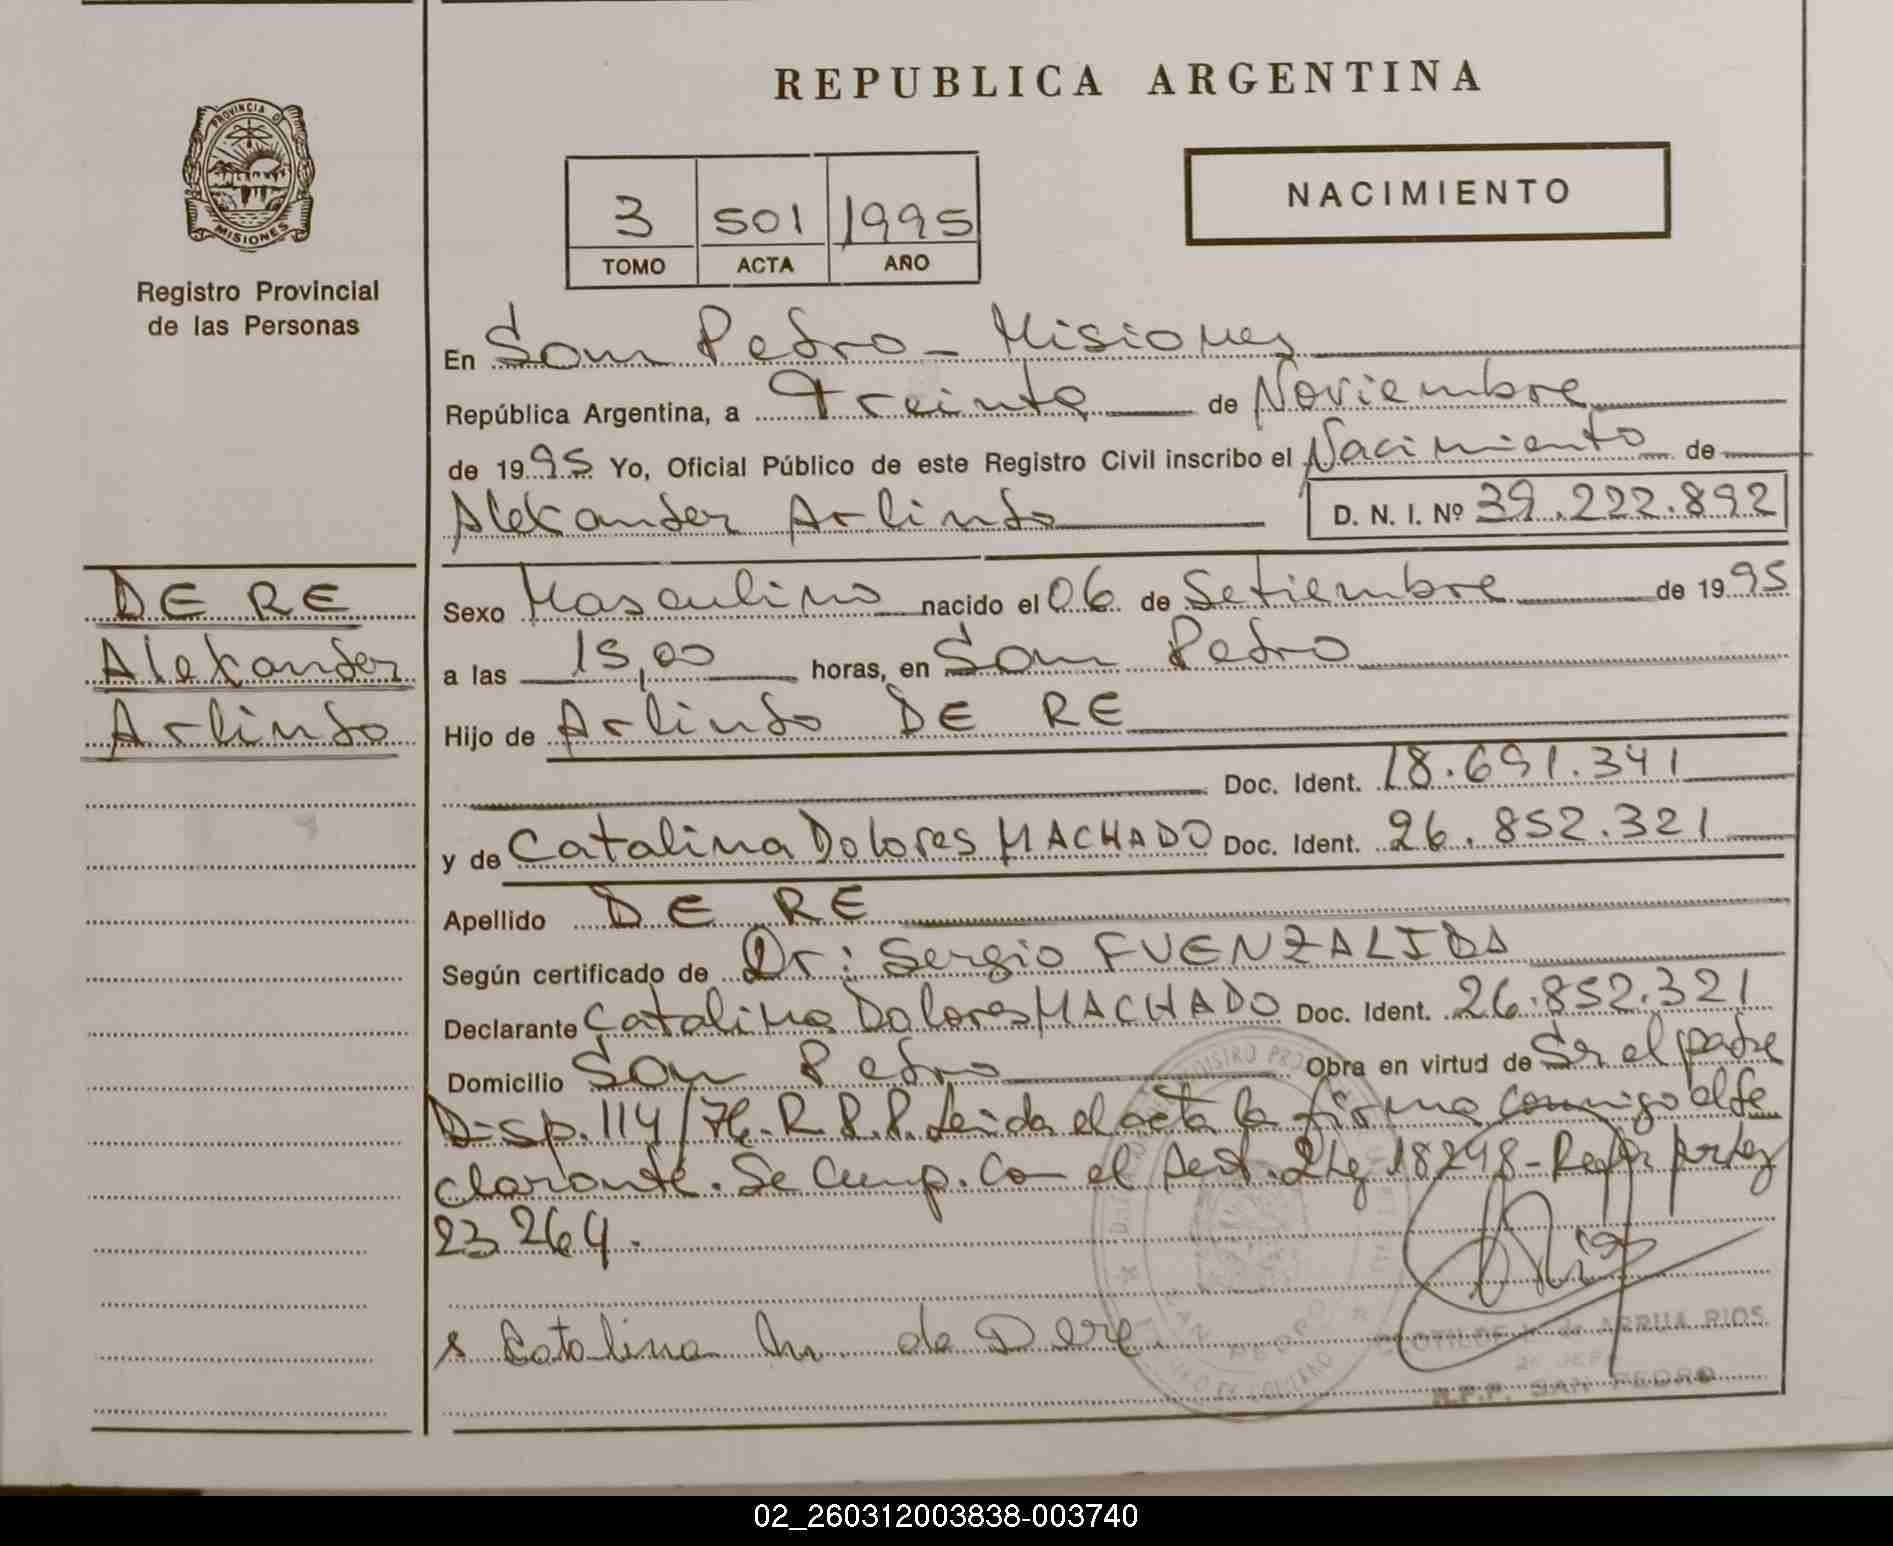 REPUBLICA ARGENTINA
PROVINCIA D
MISIONES
Registro Provincial
de las Personas
NACIMIENTO
3 501 1995
TOMO ACTA AÑO
En San Pedro - Misiones
República Argentina, a Treinta de Noviembre
de 1995 Yo, Oficial Público de este Registro Civil inscribo el Nacimiento de
Alexander Arlindo D. N. I. Nº 39.222.892
DE RE
Alexander
Arlindo
Sexo Masculino nacido el 06 de Setiembre de 1995
a las 15,00 horas, en San Pedro
Hijo de Arlindo DE RE
Doc. Ident. 18.691.341
y de Catalina Dolores MACHADO Doc. Ident. 26.852.321
Apellido DE RE
Según certificado de Dr: Sergio FUENZALIDA
Declarante Catalina Dolores MACHADO Doc. Ident. 26.852.321
Domicilio San Pedro Obra en virtud de Ser el padre
Disp. 114/76. R.P.P. Leida el acta la firma conmigo el de
clarante. Se Cump. Con el Art. 2 Ley 18248 - por Ley
23264.
Catalina M. de Dere
ARRUA RIOS
R.P.P. SAN PEDRO
02_260312003838-003740